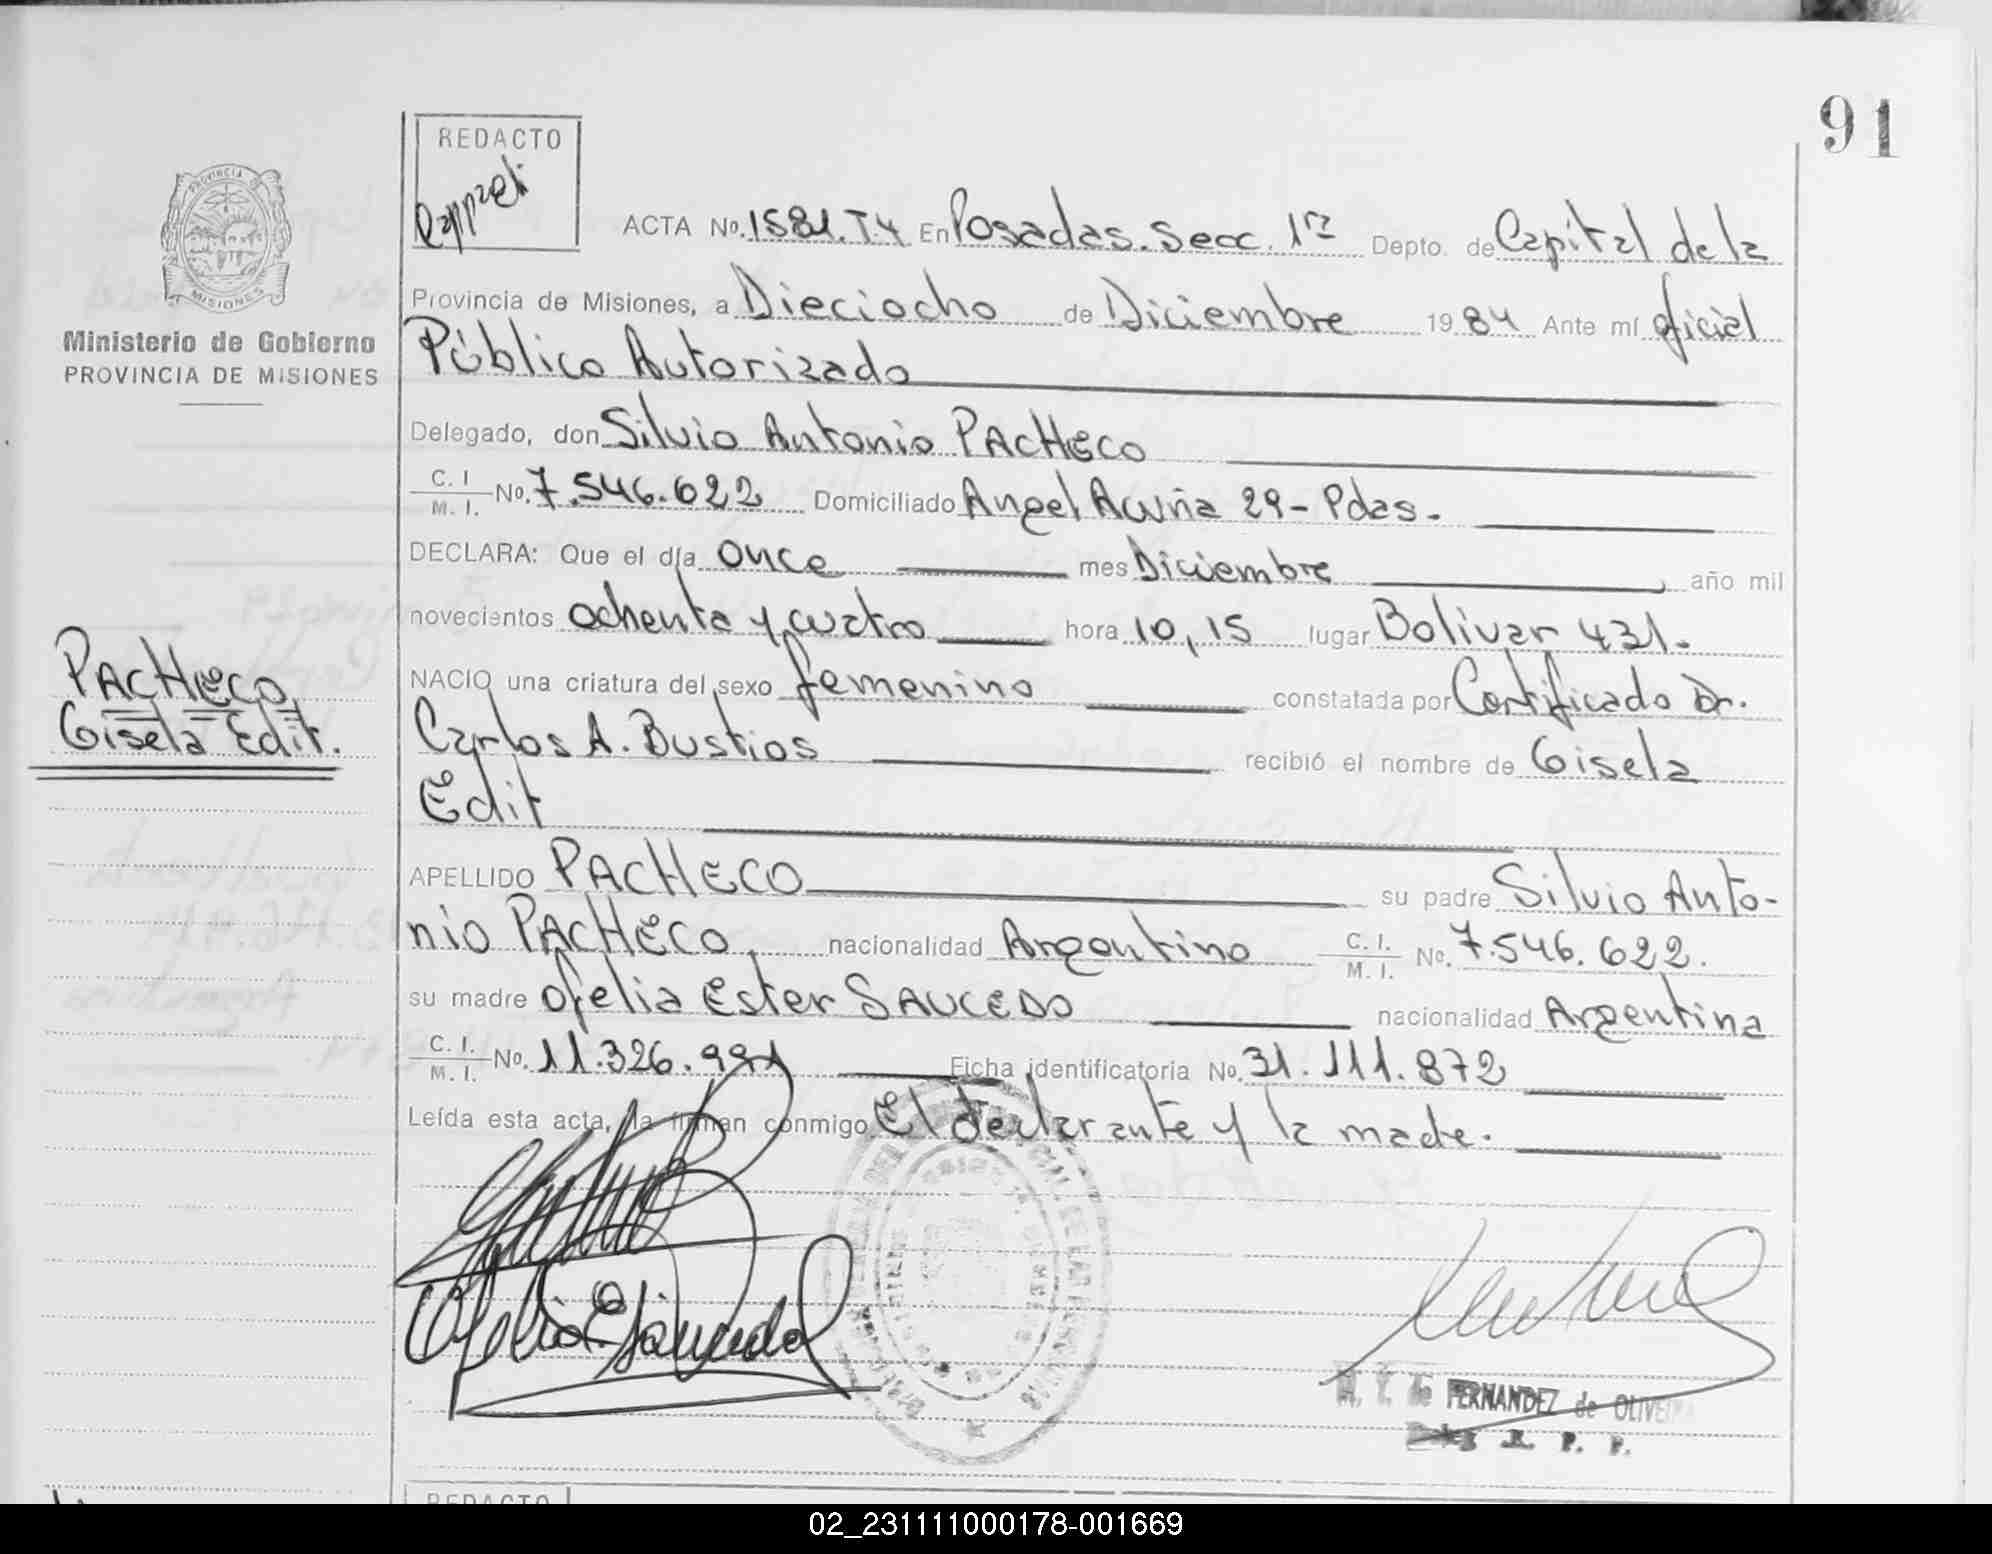 91
REDACTO
PROVINCIA DE
MISIONES
Ministerio de Gobierno
PROVINCIA DE MISIONES
PACHECO
Gisela Edit.
ACTA No. 1581.T4 En Posadas. Secc. 1ra Depto. de Capital de la
Provincia de Misiones, a Dieciocho de Diciembre 1984 Ante mí oficial
Público Autorizado
Delegado, don Silvio Antonio PACHECO
C. I. M. I. No. 7.546.622 Domiciliado Angel Acuña 29 - Pdas.
DECLARA: Que el día once mes Diciembre, año mil
novecientos ochenta y cuatro hora 10,15 lugar Bolivar 431.
NACIO una criatura del sexo femenino constatada por Certificado Dr.
Carlos A. Bustios recibió el nombre de Gisela
Edit
APELLIDO PACHECO su padre Silvio Anto-
nio PACHECO nacionalidad Argentino C. I. M. I. No. 7.546.622.
su madre Ofelia Ester SAUCEDO nacionalidad Argentina
C. I. M. I. No. 11.326.991 Ficha identificatoria No. 31.111.872
Leída esta acta, la firman conmigo El declarante y la madre.
FERNANDEZ de OLIVEIRA
REDACTO
02_231111000178-001669